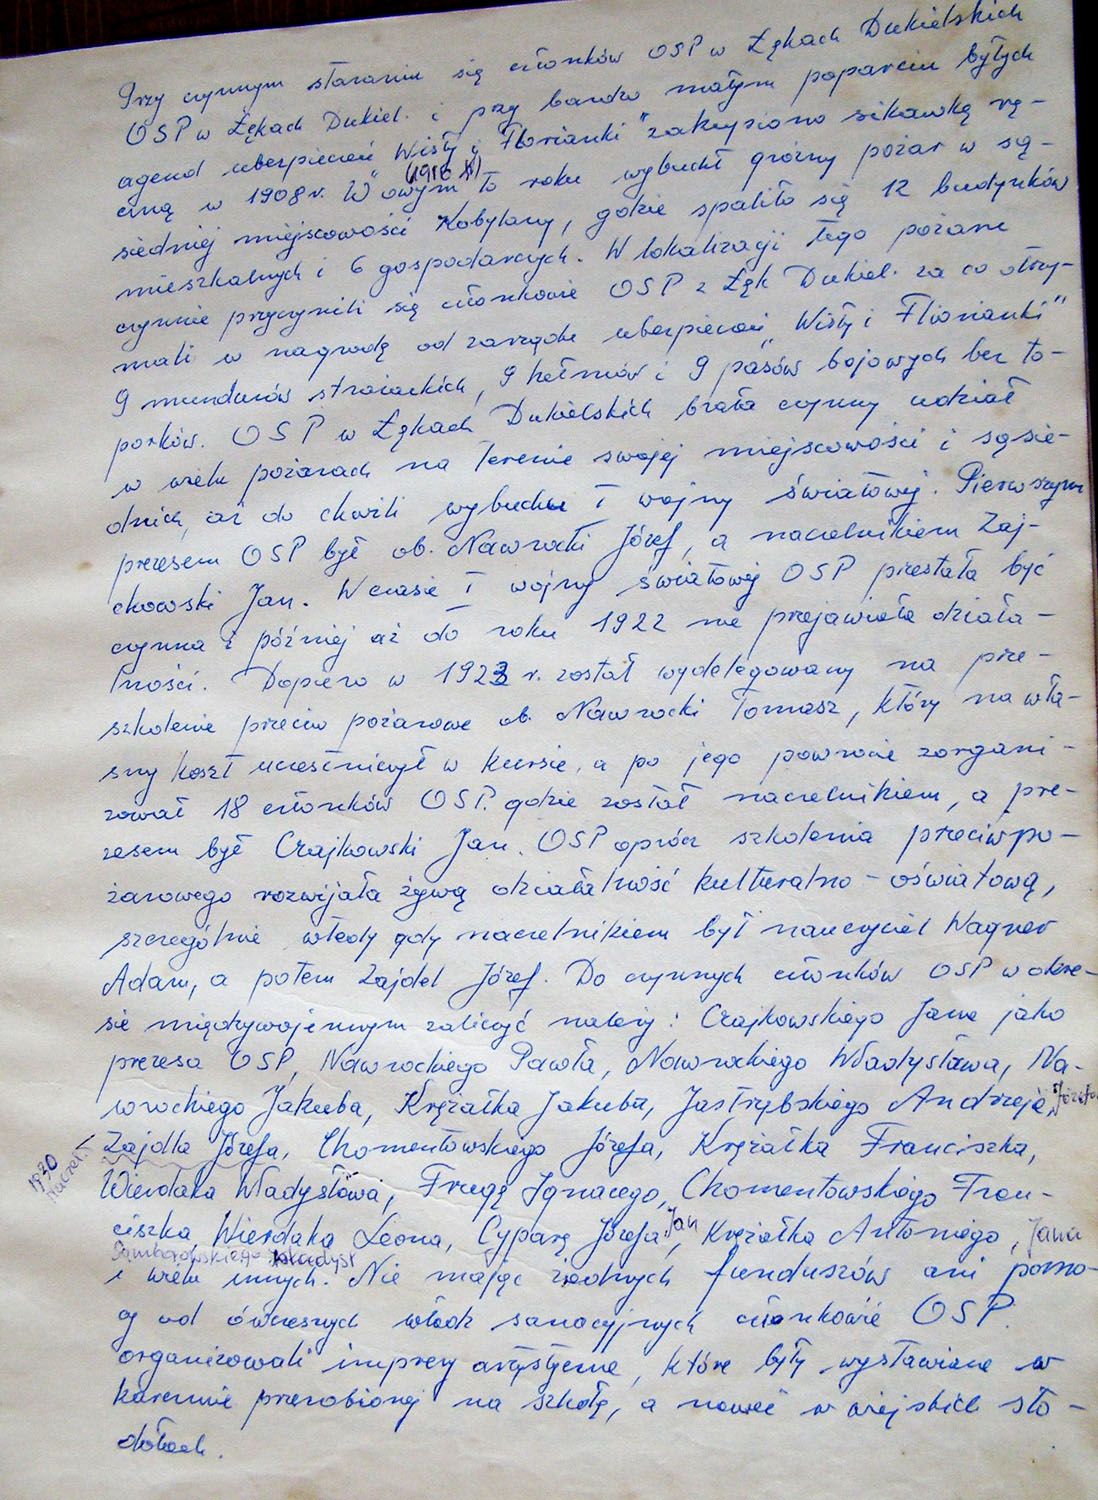 Przy czynnym staraniu się członków OSP w Łękach Dukielskich
OSP w Łękach Dukiel. i przy bardzo małym poparciu byłych
agend ubezpieczeń "Wisły i Florianki" zakupiono sikawkę rę-
czną w 1908 r. W owym to roku wybuchł groźny pożar w są-
siedniej miejscowości Kobylany, gdzie spaliło się 12 budynków
mieszkalnych i 6 gospodarczych. W lokalizacji tego pożaru
czynnie przyczynili się członkowie OSP z Łęk Dukiel. za co otrzy-
mali w nagrodę od zarządu ubezpieczeń "Wisły i Florianki"
9 mundurów strażackich, 9 hełmów i 9 pasów bojowych bez to-
porków. OSP w Łękach Dukielskich brała czynny udział
w wielu pożarach na terenie swojej miejscowości i sąsie-
dnich, aż do chwili wybuchu I wojny światowej. Pierwszym
prezesem OSP był ob. Nawrocki Józef, a naczelnikiem Zaj-
chowski Jan. W czasie I wojny światowej OSP przestała być
czynna i później aż do roku 1922 nie przejawiała działa-
lności. Dopiero w 1923 r. został wydelegowany na prze-
szkolenie przeciw pożarowe ob. Nawrocki Tomasz, który na wła-
sny koszt uczestniczył w kursie, a po jego powrocie zorgani-
zował 18 członków OSP. gdzie został naczelnikiem, a pre-
zesem był Czajkowski Jan. OSP oprócz szkolenia przeciwpo-
żarowego rozwijała żywą działalność kulturalno-oświatową,
szczególnie wtedy gdy naczelnikiem był nauczyciel Wagner
Adam, a potem Zajdel Józef. Do czynnych członków OSP w okre-
sie międzywojennym zaliczyć należy: Czajkowskiego Jana jako
prezesa OSP, Nawrockiego Pawła, Nawrockiego Władysława, Na-
wrockiego Jakuba, Krężałka Jakuba, Jastrzębskiego Andrzeja, Józefa
Zajdla Józefa, Chomentowskiego Józefa, Krężałka Franciszka,
1930
Wierdaka Władysława, Frugę Ignacego, Chomentowskiego Fran-
ciszka, Wierdaka Leona, Cyparę Józefa Jan, Krężałka Antoniego, Jana
Samborowskiego Władysł
i wielu innych. Nie mając żadnych funduszów ani pomo-
cy od ówczesnych władz sanacyjnych członkowie OSP.
organizowali imprezy artystyczne, które były wystawiane w
karczmie przerobionej na szkołę, a nawet w wiejskich sto-
dołach.